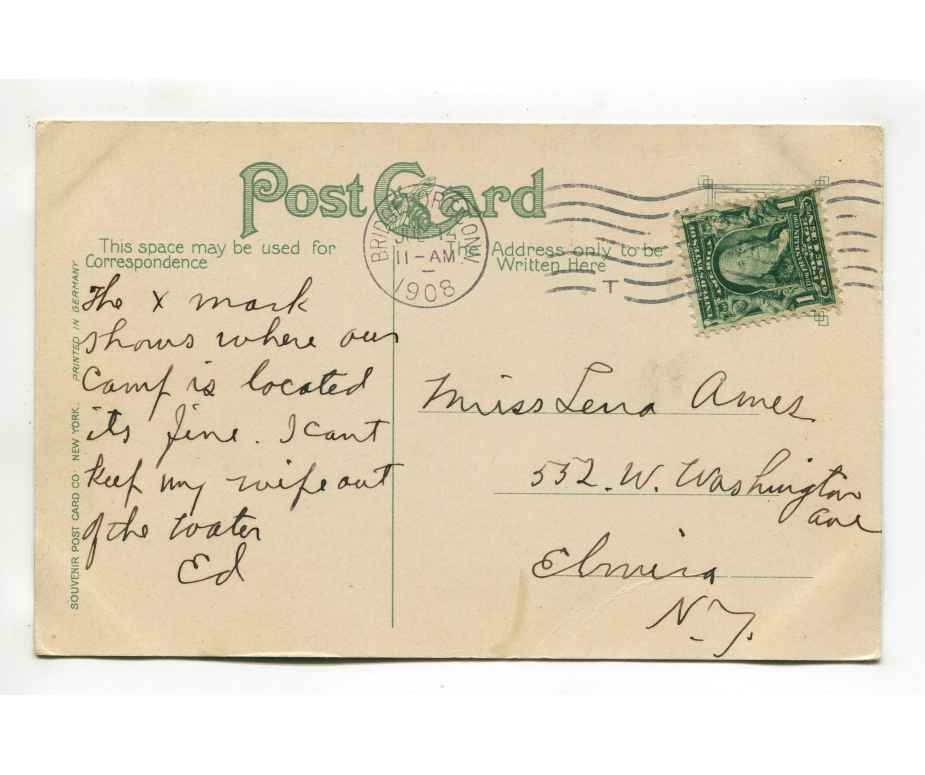 Post Card
BRIDGEPORT CONN
11-AM
1908
T
This space may be used for
Correspondence
The Address only to be
Written Here
The X mark
shows where our
Camp is located
its fine. I cant
keep my wife out
of the water
Ed
Miss Lena Ames
552. W. Washington
ave
Elmira
N.Y.
SOUVENIR POST CARD CO. NEW YORK. PRINTED IN GERMANY
1 1